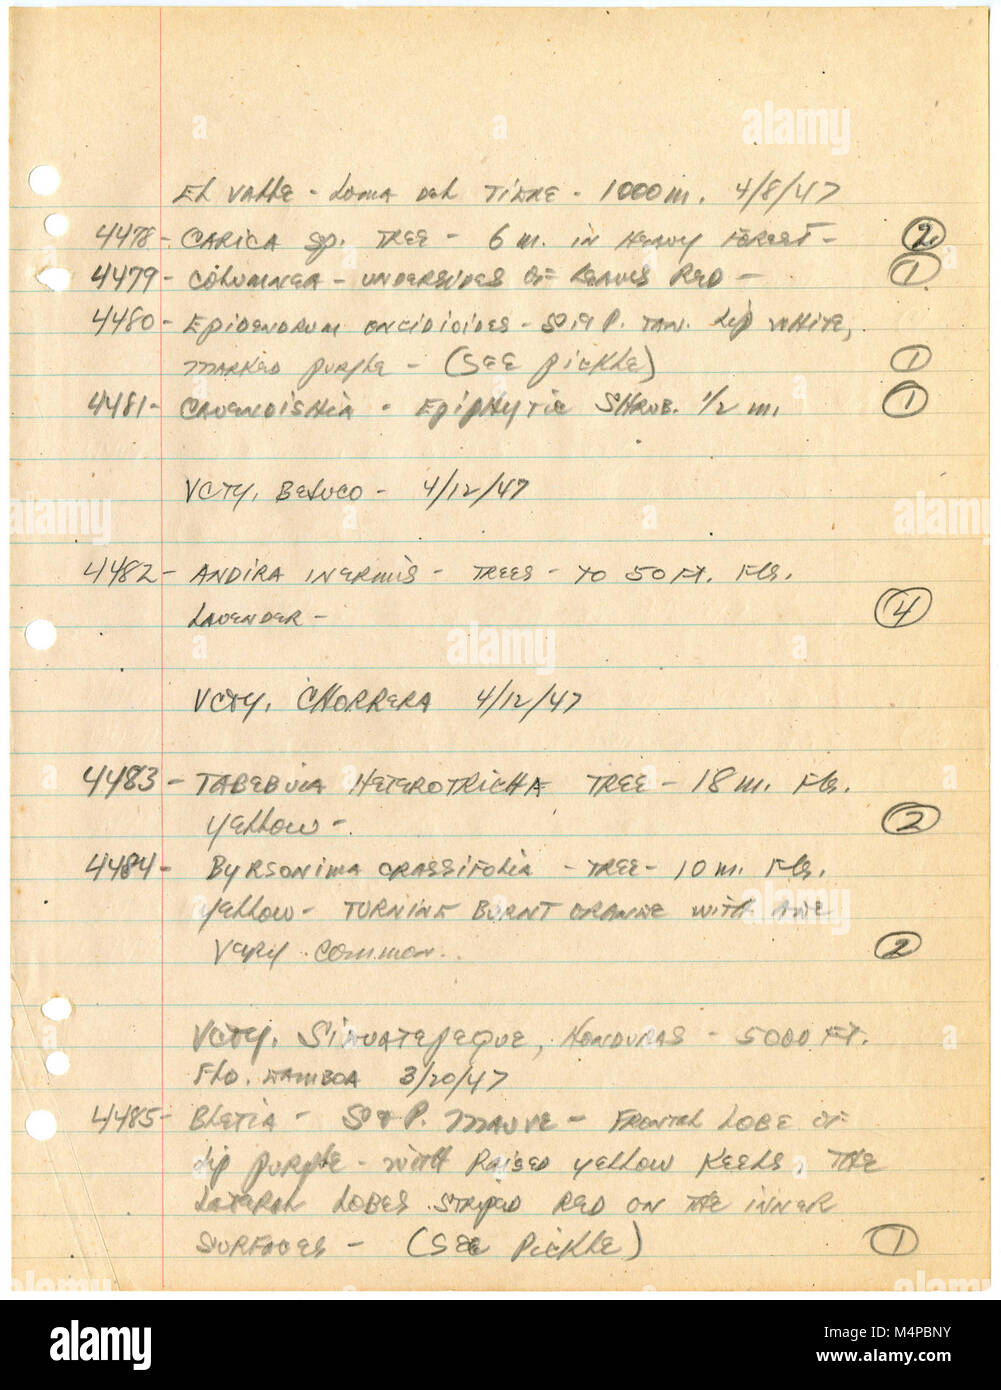 El Valle - Loma del Tigre - 1000 m. 4/8/47
4478 - Carica sp. Tree - 6 m. in heavy forest - 2
4479 - Columnea - undersides of leaves red - 1
4480 - Epidendrum oncidioides - S. & P. tan. Lip white,
marked purple - (See pickle) 1
4481 - Cavendishia - Epiphytic shrub. 1/2 m. 1
Vcty. Bejuco - 4/12/47
4482 - Andira inermis - trees - to 50 ft. Fls.
lavender - 4
Vcty. Chorrera 4/12/47
4483 - Tabebuia heterotricha tree - 18 m. Fls.
yellow - 2
4484 - Byrsonima crassifolia - tree - 10 m. Fls.
yellow - turning burnt orange with age
Very common. 2
Vcty. Siguatepeque, Honduras - 5000 ft.
Fld. Gamboa 3/20/47
4485 - Bletia - S & P. mauve - frontal lobe of
lip purple - with raised yellow keels, the
lateral lobes striped red on the inner
surfaces - (See pickle) 1
alamy
Image ID: M4PBNY
www.alamy.com